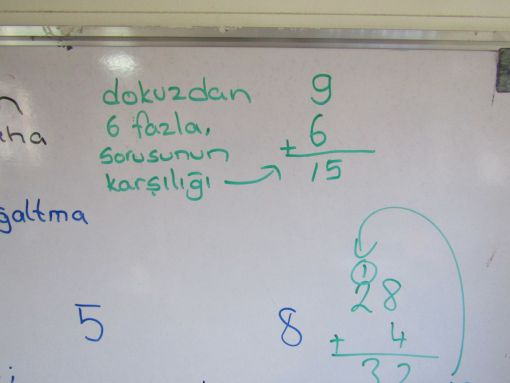 dokuzdan
6 fazla,
sorusunun
karşılığı
9
+ 6
15
ğaltma
5
8
1
28
+ 4
32